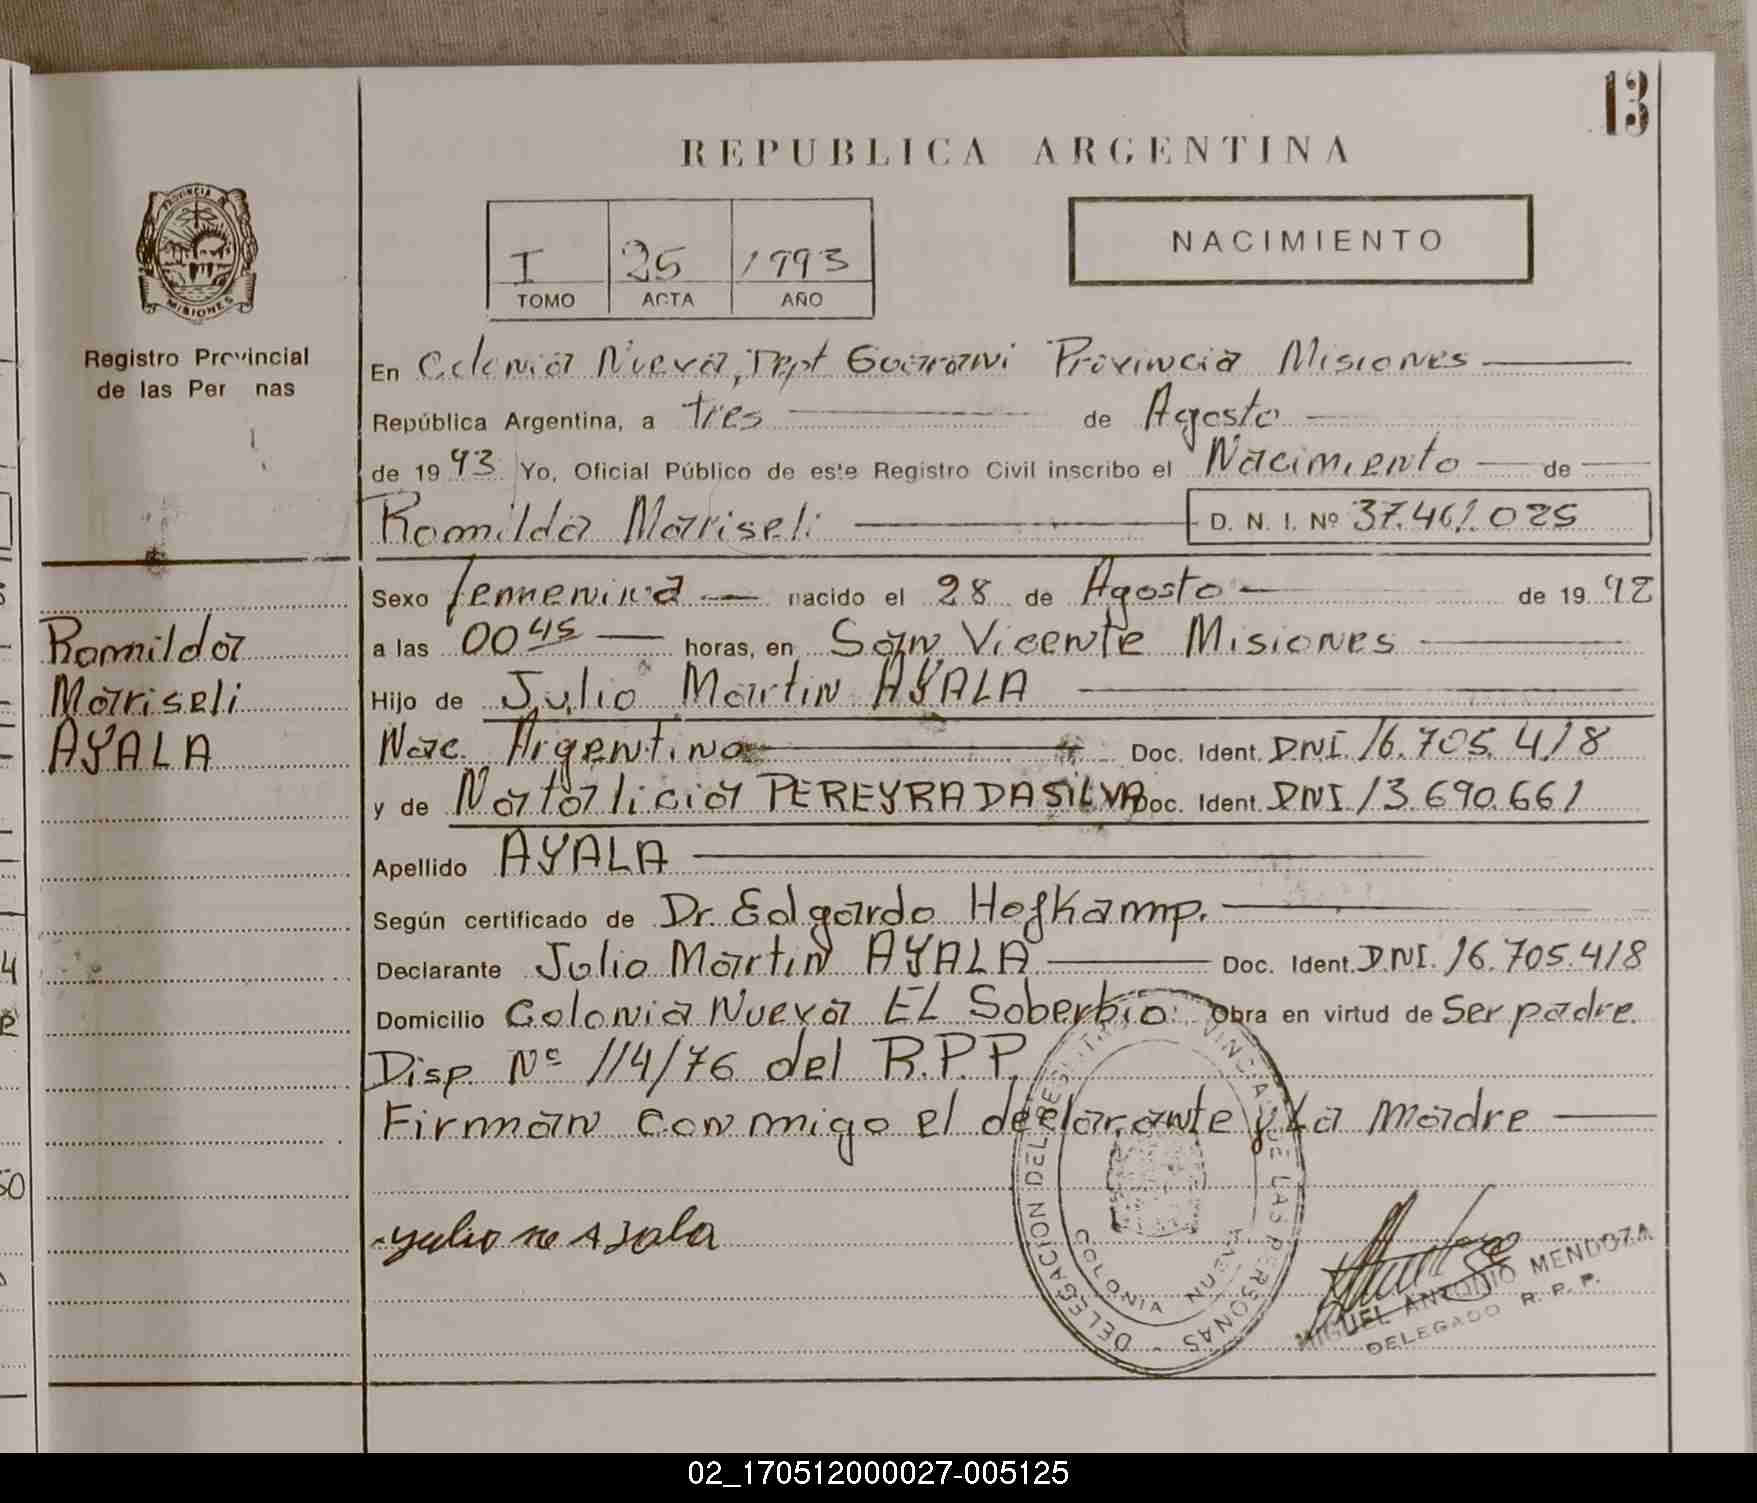 13
REPUBLICA ARGENTINA
PROVINCIA
MISIONES
I 25 1993
TOMO ACTA AÑO
NACIMIENTO
Registro Provincial
de las Per nas
En Colonia Nueva, Dept Guarani Provincia Misiones
República Argentina, a tres de Agosto
de 1993 Yo, Oficial Público de este Registro Civil inscribo el Nacimiento de
Romilda Mariseli D. N. I. Nº 37.461.025
Sexo femenina nacido el 28 de Agosto de 1992
a las 00 45 horas, en San Vicente Misiones
Hijo de Julio Martin AYALA
Nac. Argentino Doc. Ident. DNI. 16.705.418
y de Natalicia PEREYRA DA SILVA Doc. Ident. DNI 13.690.661
Apellido AYALA
Según certificado de Dr. Edgardo Hofkamp.
Declarante Julio Martin AYALA Doc. Ident. DNI. 16.705.418
Domicilio Colonia Nueva EL Soberbio Obra en virtud de Ser padre.
Disp. Nº 114/76 del R.P.P.
Firman conmigo el declarante y La madre
Romilda
Mariseli
AYALA
Julio M Ayala
DELEGACION DEL REGISTRO PROVINCIAL DE LAS PERSONAS
COLONIA NUEVA
MIGUEL ANTONIO MENDOZA
DELEGADO R. P. P.
02_170512000027-005125